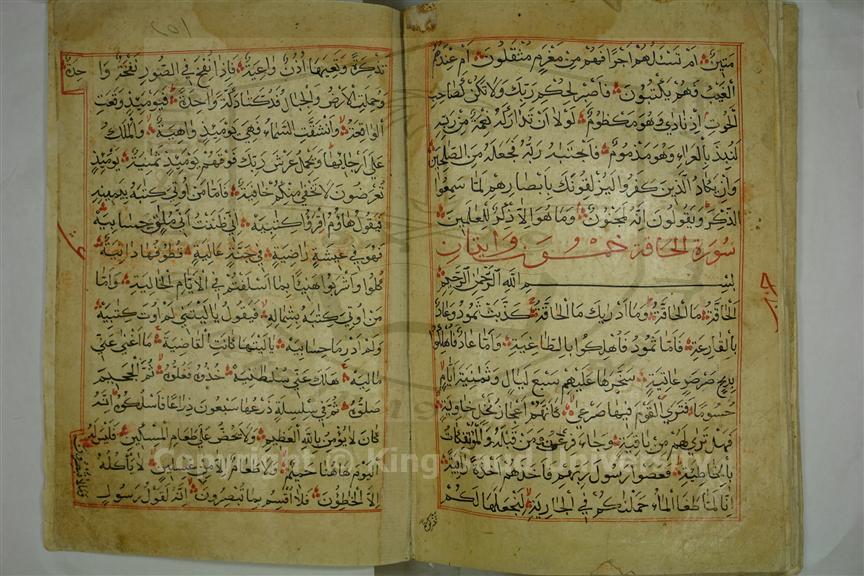 متين ام تسئلهم اجرا فهم من مغرم مثقلون ام عندهم
الغيب فهم يكتبون فاصبر لحكم ربك ولا تكن كصاحب
الحوت اذ نادى وهو مكظوم لولا ان تداركه نعمة من ربه
لنبذ بالعراء وهو مذموم فاجتبه ربه فجعله من الصلحين
وان يكاد الذين كفروا ليزلقونك بابصارهم لما سمعوا
الذكر ويقولون انه لمجنون وما هو الا ذكر للعلمين
سورة الحاقة خمسون وايتان
بسم الله الرحمن الرحيم
الحاقة ما الحاقة وما ادريك ما الحاقة كذبت ثمود وعاد
بالقارعة فاما ثمود فاهلكوا بالطاغية واما عاد فاهلكوا
بريح صرصر عاتية سخرها عليهم سبع ليال وثمنية ايام
حسوما فترى القوم فيها صرعى كانهم اعجاز نخل خاوية
فهل ترى لهم من باقية وجاء فرعون ومن قبله والمؤتفكات
بالخاطئة فعصوا رسول ربهم فاخذهم اخذة رابية
انا لما طغا الماء حملنكم في الجارية لنجعلها لكم
تذكرة وتعيها اذن واعية فاذا نفخ في الصور نفخة وا حدة
وحملت الارض والجبال فدكتا دكة واحدة فيومئذ وقعت
الواقعة وانشقت السماء فهي يومئذ واهية والملك
على ارجائها ويحمل عرش ربك فوقهم يومئذ ثمنية يومئذ
تعرضون لا تخفى منكم خافية فاما من اوتي كتبه بيمينه
فيقول هاؤم اقرؤا كتبيه اني ظننت اني ملق حسابيه
فهو في عيشة راضية في جنة عالية قطوفها دانية
كلوا واشربوا هنيئا بما اسلفتم في الايام الخالية واما
من اوتي كتبه بشماله فيقول ياليتني لم اوت كتبيه
ولم ادر ما حسابيه ياليتها كانت القاضية ما اغنى عني
ماليه هلك عني سلطنيه خذوه فغلوه ثم الجحيم
صلوه ثم في سلسلة ذرعها سبعون ذراعا فاسلكوه انه
كان لا يؤمن بالله العظيم ولا يحض على طعام المسكين فليس له
اليوم هاهنا حميم ولا طعام الا من غسلين لا ياكله
الا الخطؤن فلا اقسم بما تبصرون انه لقول رسول
Copyright © King Saud University